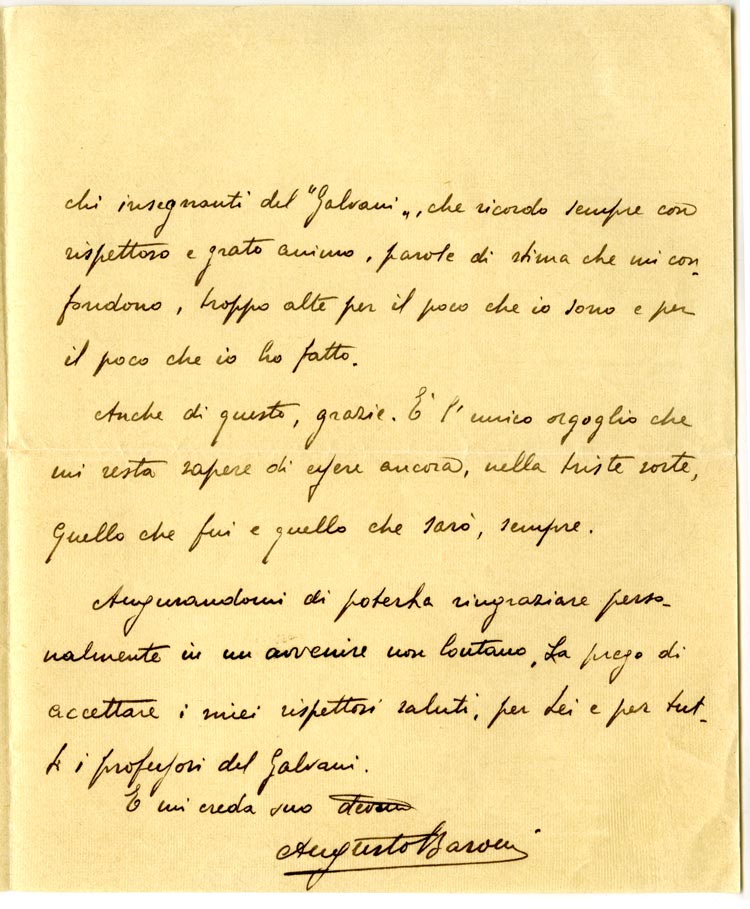 chi insegnanti del "Galvani", che ricordo sempre con
rispettoso e grato animo, parole di stima che mi con-
fondono, troppo alte per il poco che io sono e per
il poco che io ho fatto.
Anche di questo, grazie. E' l'unico orgoglio che
mi resta sapere di essere ancora, nella triste sorte,
quello che fui e quello che sarò, sempre.
Augurandomi di poterLa ringraziare perso-
nalmente in un avvenire non lontano, La prego di
accettare i miei rispettosi saluti, per Lei e per tut-
ti i professori del Galvani.
E mi creda suo
Augusto Baroni